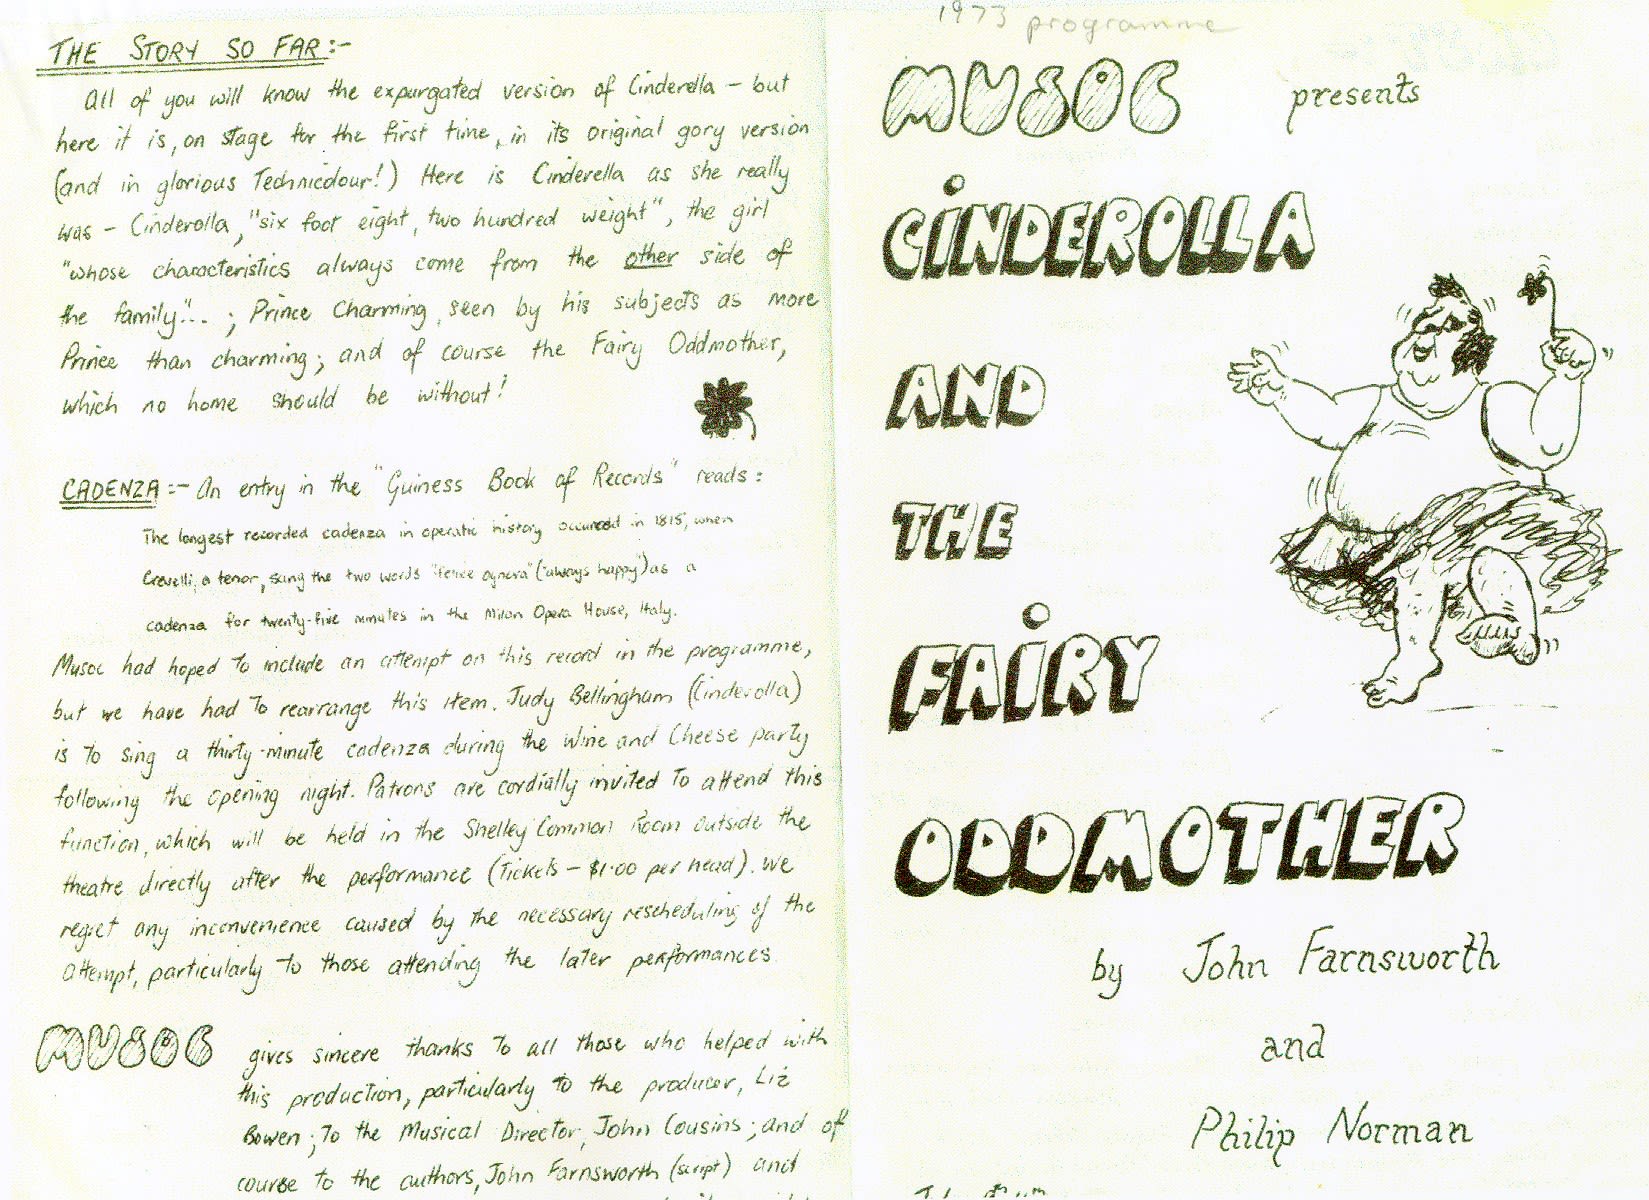 THE STORY SO FAR:-
All of you will know the expurgated version of Cinderella - but
here it is, on stage for the first time, in its original gory version
(and in glorious Technicolour!) Here is Cinderella as she really
was - Cinderolla, "six foot eight, two hundred weight", the girl
"whose characteristics always come from the other side of
the family"... ; Prince Charming, seen by his subjects as more
Prince than charming; and of course the Fairy Oddmother,
which no home should be without!
CADENZA:- An entry in the "Guiness Book of Records" reads:
The longest recorded cadenza in operatic history occured in 1815, when
Crevelli, a tenor, sang the two words "felice ognora" ("always happy") as a
cadenza for twenty-five minutes in the Milan Opera House, Italy.
Musoc had hoped to include an attempt on this record in the programme,
but we have had to rearrange this item. Judy Bellingham (Cinderolla)
is to sing a thirty-minute cadenza during the Wine and Cheese party
following the opening night. Patrons are cordially invited to attend this
function, which will be held in the Shelley Common Room outside the
theatre directly after the performance (Tickets - $1.00 per head). We
regret any inconvenience caused by the necessary rescheduling of the
attempt, particularly to those attending the later performances.
MUSOC gives sincere thanks to all those who helped with
this production, particularly to the producer, Liz
Bowen; to the Musical Director, John Cousins; and of
course to the authors, John Farnsworth (script) and
1973 programme
MUSOC presents
CINDEROLLA
AND
THE
FAIRY
ODDMOTHER
by John Farnsworth
and
Philip Norman